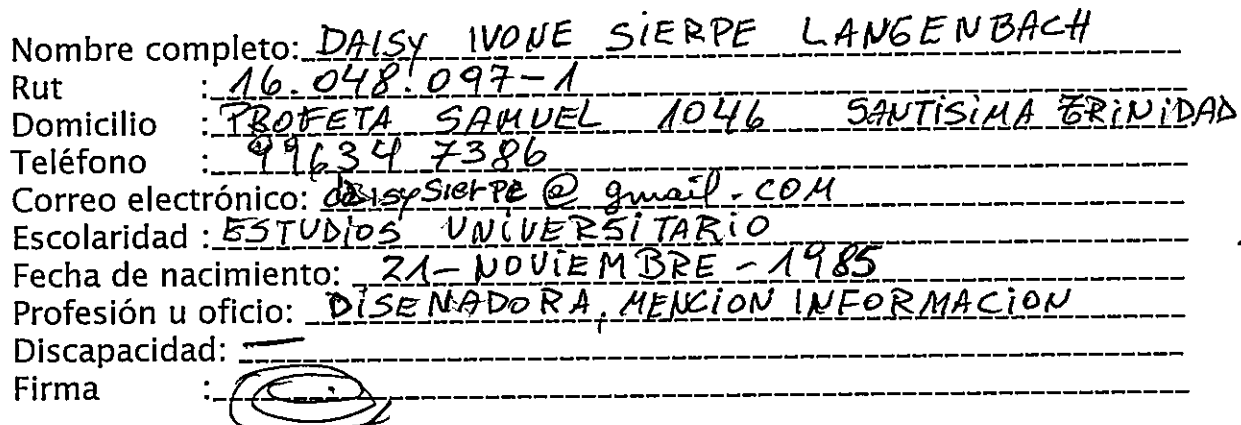 Nombre completo: DAISY IVONE SIERPE LANGENBACH
Rut : 16.048.097-1
Domicilio : PROFETA SAMUEL 1046 SANTISIMA TRINIDAD
Teléfono : 99634 7386
Correo electrónico: daisysierpe@gmail.com
Escolaridad : ESTUDIOS UNIVERSITARIO
Fecha de nacimiento: 21-NOVIEMBRE-1985
Profesión u oficio: DISENADORA, MENCION INFORMACION
Discapacidad: —
Firma :